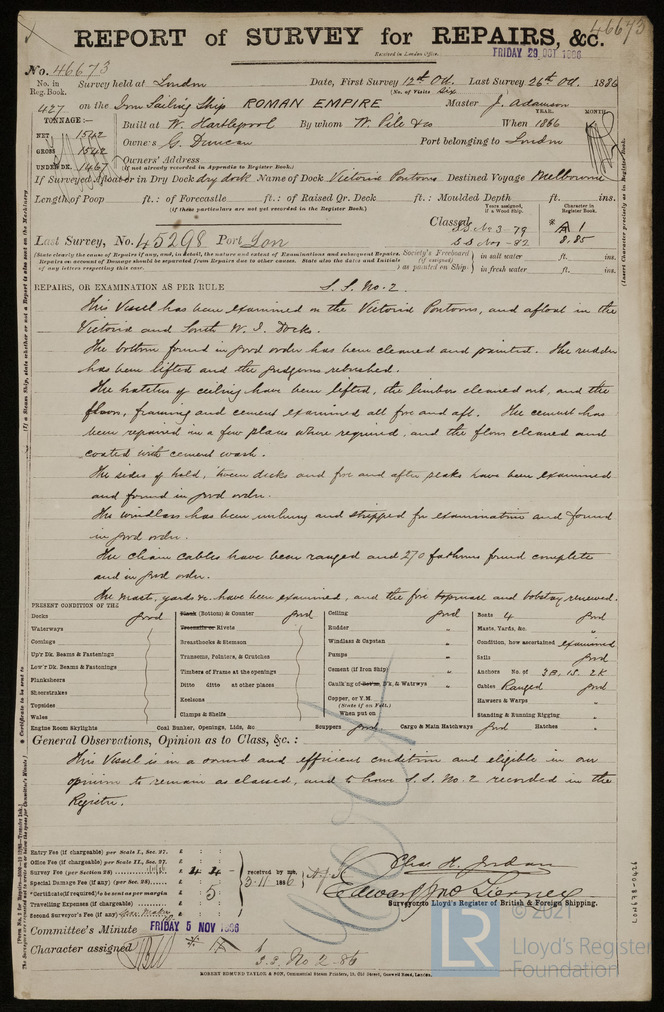 46673
REPORT of SURVEY for REPAIRS, &c.
Received in London Office. FRIDAY 29 OCT 1886
No. 46673
No. in Reg. Book. Survey held at London Date, First Survey 12th Oct. Last Survey 26th Oct. 1886
(No. of Visits Six)
427 on the Iron Sailing Ship ROMAN EMPIRE Master J. Adamson
TONNAGE:—
YEAR. MONTH.
NET 1542 Built at W. Hartlepool By whom W. Pile & Co When 1866
GROSS 1542 Owners G. Duncan Port belonging to London
UNDER DK. 1467 Owners' Address
(if not already recorded in Appendix to Register Book.)
If Surveyed Afloat or in Dry Dock dry dock Name of Dock Victoria Pontoons Destined Voyage Melbourne
Length of Poop ft.: of Forecastle ft.: of Raised Qr. Deck ft.: Moulded Depth ft. ins.
(if these particulars are not yet recorded in the Register Book.)
Years assigned, if a Wood Ship. Character in Register Book.
Classed S.S. No 3-79 A 1
S.S. No 1-82 8.85
Last Survey, No. 45298 Port Lon
(State clearly the cause of Repairs if any, and, in detail, the nature and extent of Examinations and subsequent Repairs. Repairs on account of Damage should be separated from Repairs due to other causes. State also the dates and Initials of any letters respecting this case.
Society's Freeboard (if assigned) as painted on Ship- in salt water ft. ins.
in fresh water ft. ins.
REPAIRS, OR EXAMINATION AS PER RULE S. S. No. 2.
This Vessel has been examined on the Victoria Pontoons, and afloat in the
Victoria and South W. I. Docks.
The bottom found in good order has been cleaned and painted. The rudder
has been lifted and the pudgeons rebushed.
The hatches of ceiling have been lifted, the limbers cleaned out, and the
floors, framing and cement examined all fore and aft. The cement has
been repaired in a few places where required, and the floors cleaned and
coated with cement wash.
The sides of hold, 'tween decks and fore and after peaks have been examined
and found in good order.
The windlass has been unhung and stripped for examination and found
in good order.
The chain cables have been ranged and 270 fathoms found complete
and in good order.
The masts, yards &c. have been examined, and the fore topmast and bobstay renewed.
PRESENT CONDITION OF THE
Decks good
Waterways
Comings
Up'r Dk. Beams & Fastenings
Low'r Dk. Beams & Fastenings
Planksheers
Sheerstrakes
Topsides
Wales
Engine Room Skylights
Plank (Bottom) & Counter good
Treenails or Rivets
Breasthooks & Stemson
Transoms, Pointers, & Crutches
Timbers of Frame at the openings
Ditto ditto at other places
Keelsons
Clamps & Shelfs
Coal Bunker, Openings, Lids, &c
Ceiling good
Rudder "
Windlass & Capstan "
Pumps "
Cement (if Iron Ship) "
Caulk'ng of Bot'm, D'k, & Watrwys "
Copper, or Y.M.
(State if on Felt.)
When put on
Scuppers good Cargo & Main Hatchways good Hatches "
Boats 4 good
Masts, Yards, &c. "
Condition, how ascertained examined
Sails good
Anchors No. of 3B. 1S. 2K
Cables Ranged good
Hawsers & Warps "
Standing & Running Rigging "
General Observations, Opinion as to Class, &c.:
This Vessel is in a sound and efficient condition and eligible in our
opinion to remain as classed, and to have S. S. No. 2 recorded in the
Register.
Entry Fee (if chargeable) per Scale I., Sec. 27. £ : :
Office Fee (if chargeable) per Scale II., Sec. 27. £ : :
Survey Fee (per Section 28) £ 4 : 4 : -
Special Damage Fee (if any) (per Sec. 28) £ : :
*Certificate (if required) to be sent as per margin £ : 5 :
Travelling Expenses (if chargeable) £ : :
Second Surveyor's Fee (if any) £ : :
received by me,
3.11.1886
Chas. H. Jordan
Edward Jno Tierney
Surveyors to Lloyd's Register of British & Foreign Shipping.
Committee's Minute FRIDAY 5 NOV 1886
Character assigned A 1
S.S. No 2-86
ROBERT EDMUND TAYLOR & SON, Commercial Steam Printers, 19, Old Street, Goswell Road, London.
LON678-0426
© 2021
LR
Lloyd's Register
Foundation